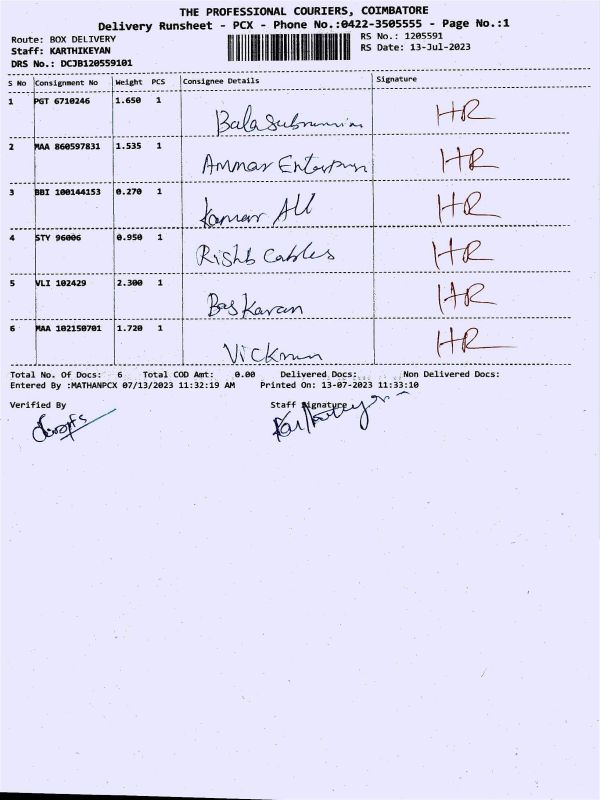 THE PROFESSIONAL COURIERS, COIMBATORE
Delivery Runsheet - PCX - Phone No.:0422-3505555 - Page No.:1
Route: BOX DELIVERY RS No.: 1205591
Staff: KARTHIKEYAN RS Date: 13-Jul-2023
DRS No.: DCJB120559101
S No Consignment No Weight PCS Consignee Details Signature
1 PGT 6710246 1.650 1 HR
2 MAA 860597831 1.535 1 Ammar HR
3 BBI 100144153 0.270 1 HR
4 STY 96006 0.950 1 Rishb Cables HR
5 VLI 102429 2.300 1 Baskaran HR
6 MAA 102150701 1.720 1 HR
Total No. Of Docs: 6 Total COD Amt: 0.00 Delivered Docs: Non Delivered Docs:
Entered By :MATHANPCX 07/13/2023 11:32:19 AM Printed On: 13-07-2023 11:33:10
Verified By Staff Signature